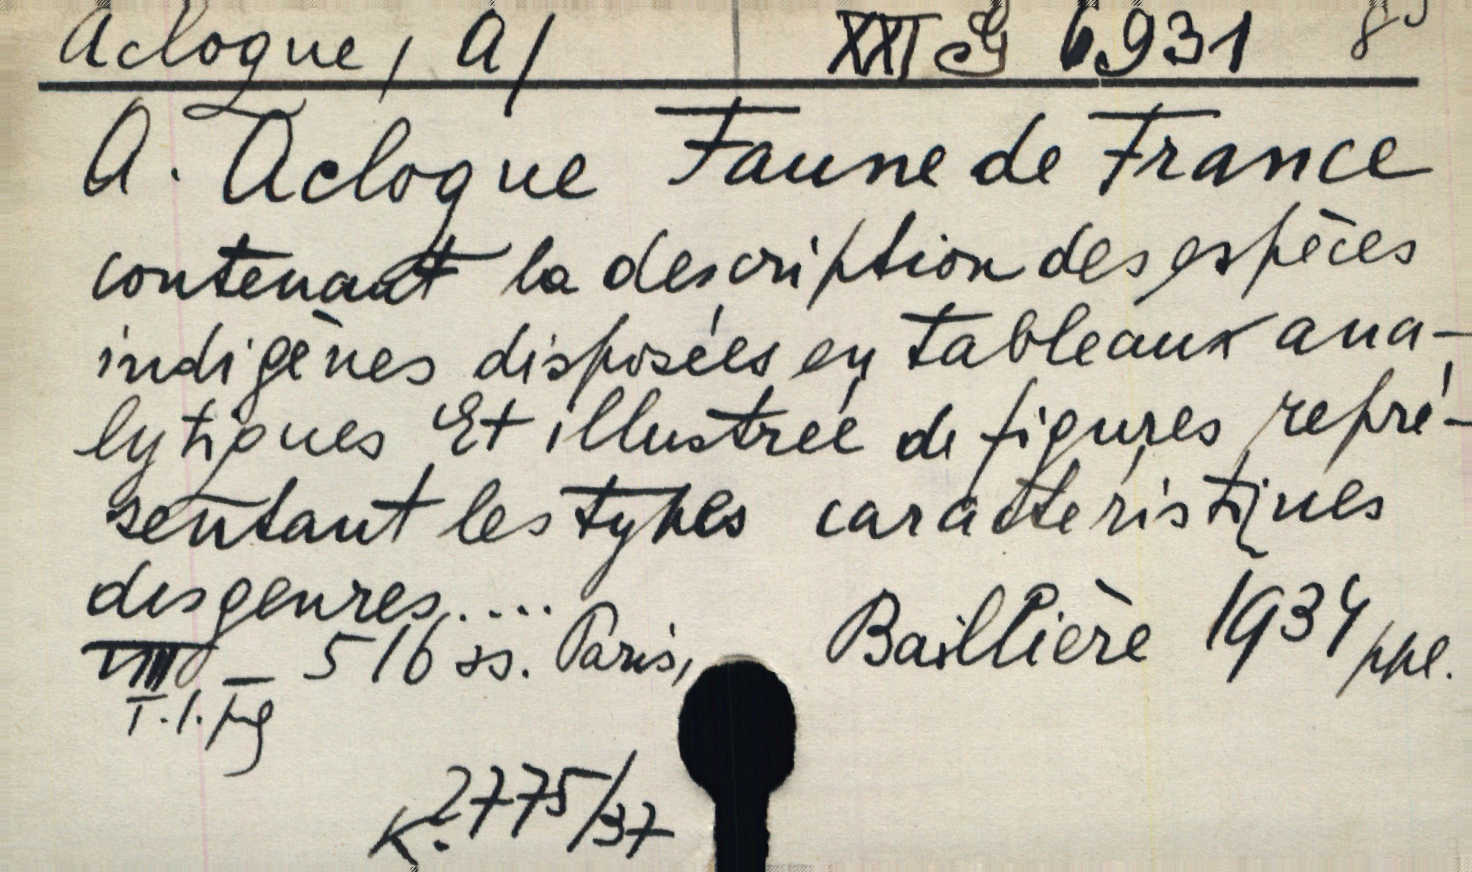 Acloque, A/ XXI G 6931 8°
A. Acloque Faune de France
contenant la description des espèces
indigènes disposées en tableaux ana-
lytiques Et illustrée de figures repré-
sentant les types caractéristiques
des genres....
VIII 516 ss. Paris, Baillière 1934 ppl.
T.1.
K. 2775/37